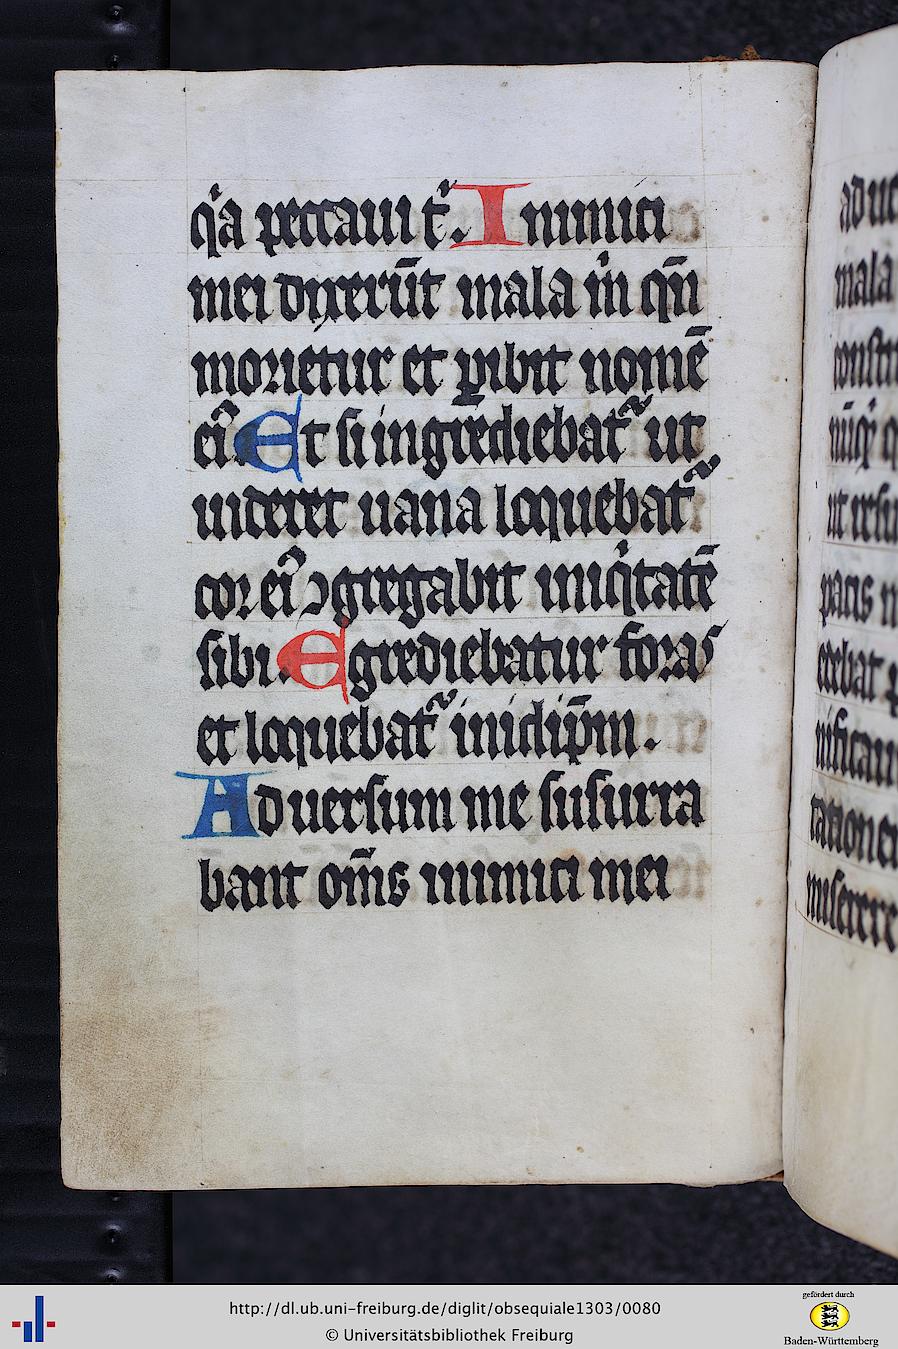 qͥa peccaui t̾. Inimici
mei dixerūt mala m̍ qn̄
morietur et ꝑibit nomē
ei᷒ Et si ingrediebat᷑ ut
uideret uana loquebat᷑
cor ei᷒ ꝯgregabit iniqͥtatē
sibi. Egrediebatur foras
et loquebat᷑ in idip̄m.
Aduersum me susurra
bant om̄s inimici mei
mala
pacis
miserere
http://dl.ub.uni-freiburg.de/diglit/obsequiale1303/0080
© Universitätsbibliothek Freiburg
gefördert durch
Baden-Württemberg